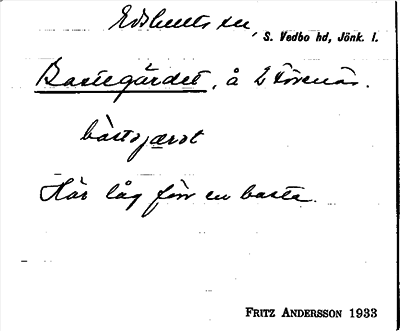 Edshults sn,
S. Vedbo hd, Jönk. l.
Bastegärdet, å 2 Törnäs.
Här låg förr en basta.
FRITZ ANDERSSON 1933